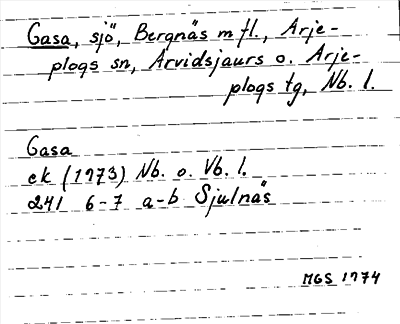 Gasa, sjö, Bergnäs m fl., Arje-
plogs sn, Arvidsjaurs o. Arje-
plogs tg, Nb. l.
Gasa
ek (1973) Nb. o. Vb. l.
241 6-7 a-b Sjulnäs
MGS 1974